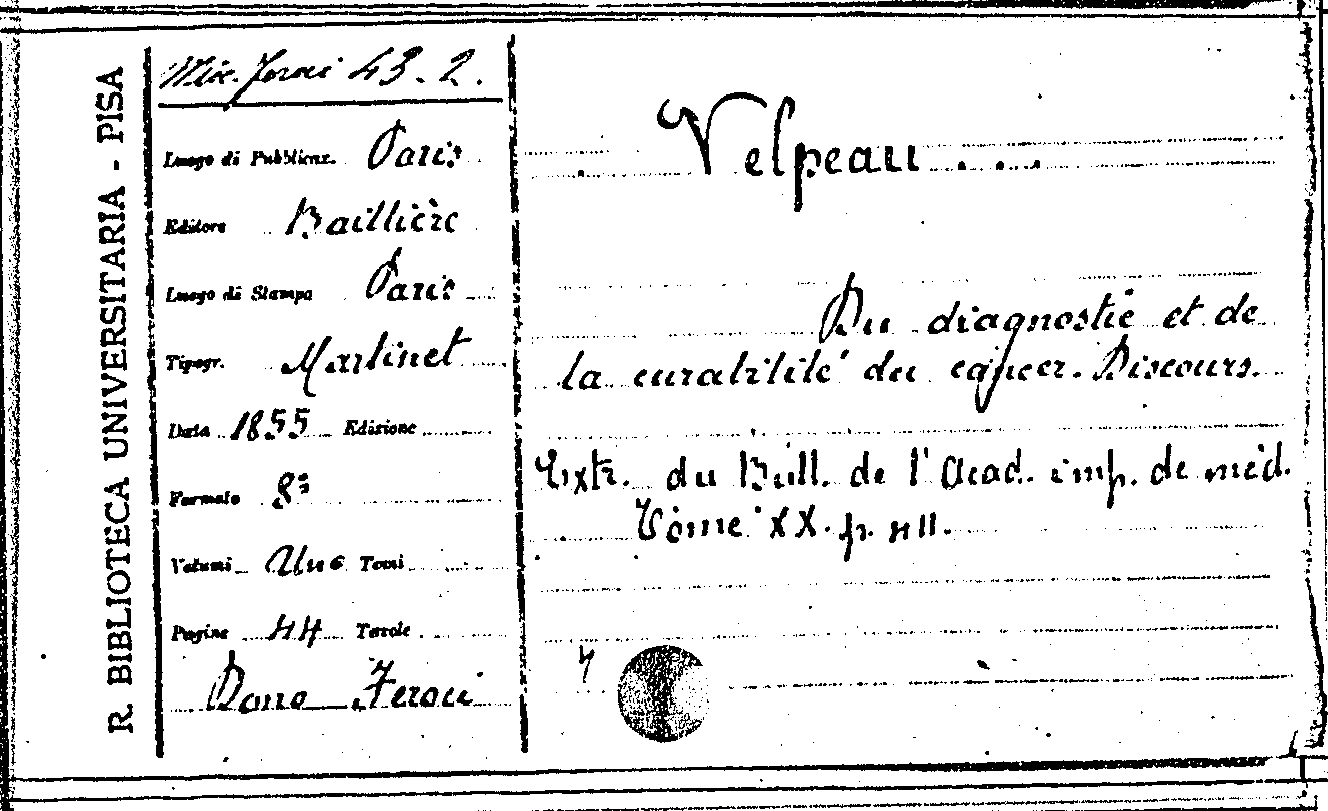 R. BIBLIOTECA UNIVERSITARIA - PISA
Misc. Feroci 43. 2.
Luogo di Pubblicaz. Paris
Editore Baillière
Luogo di Stampa Paris
Tipogr. Martinet
Data 1855 Edizione
Formato 8º
Volumi Uno Tomi
Pagine 44 Tavole
Dono Feroci
Velpeau . . .
Du diagnostic et de
la curabilité du cancer. Discours.
Extr. du Bull. de l'Acad. imp. de méd.
Tome XX. p. 411.